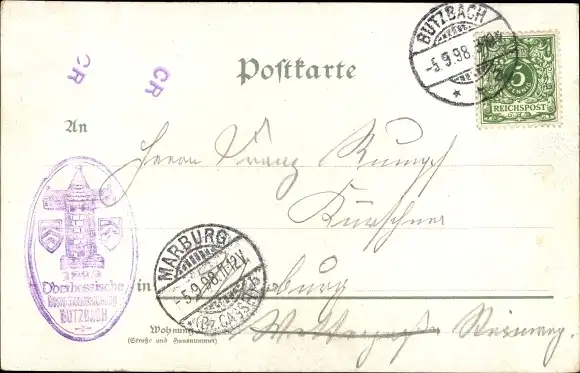 BUTZBACH
-5.9.98.
5
PFENNIG
REICHSPOST
CR
CR
Postkarte
An
Herrn Franz Rumpf
Kürschner
MARBURG
-5.9.98.11-12V.
*(Bz. CASSEL)
in
Oberhessische
BUTZBACH
Wohnung
(Straße und Hausnummer)